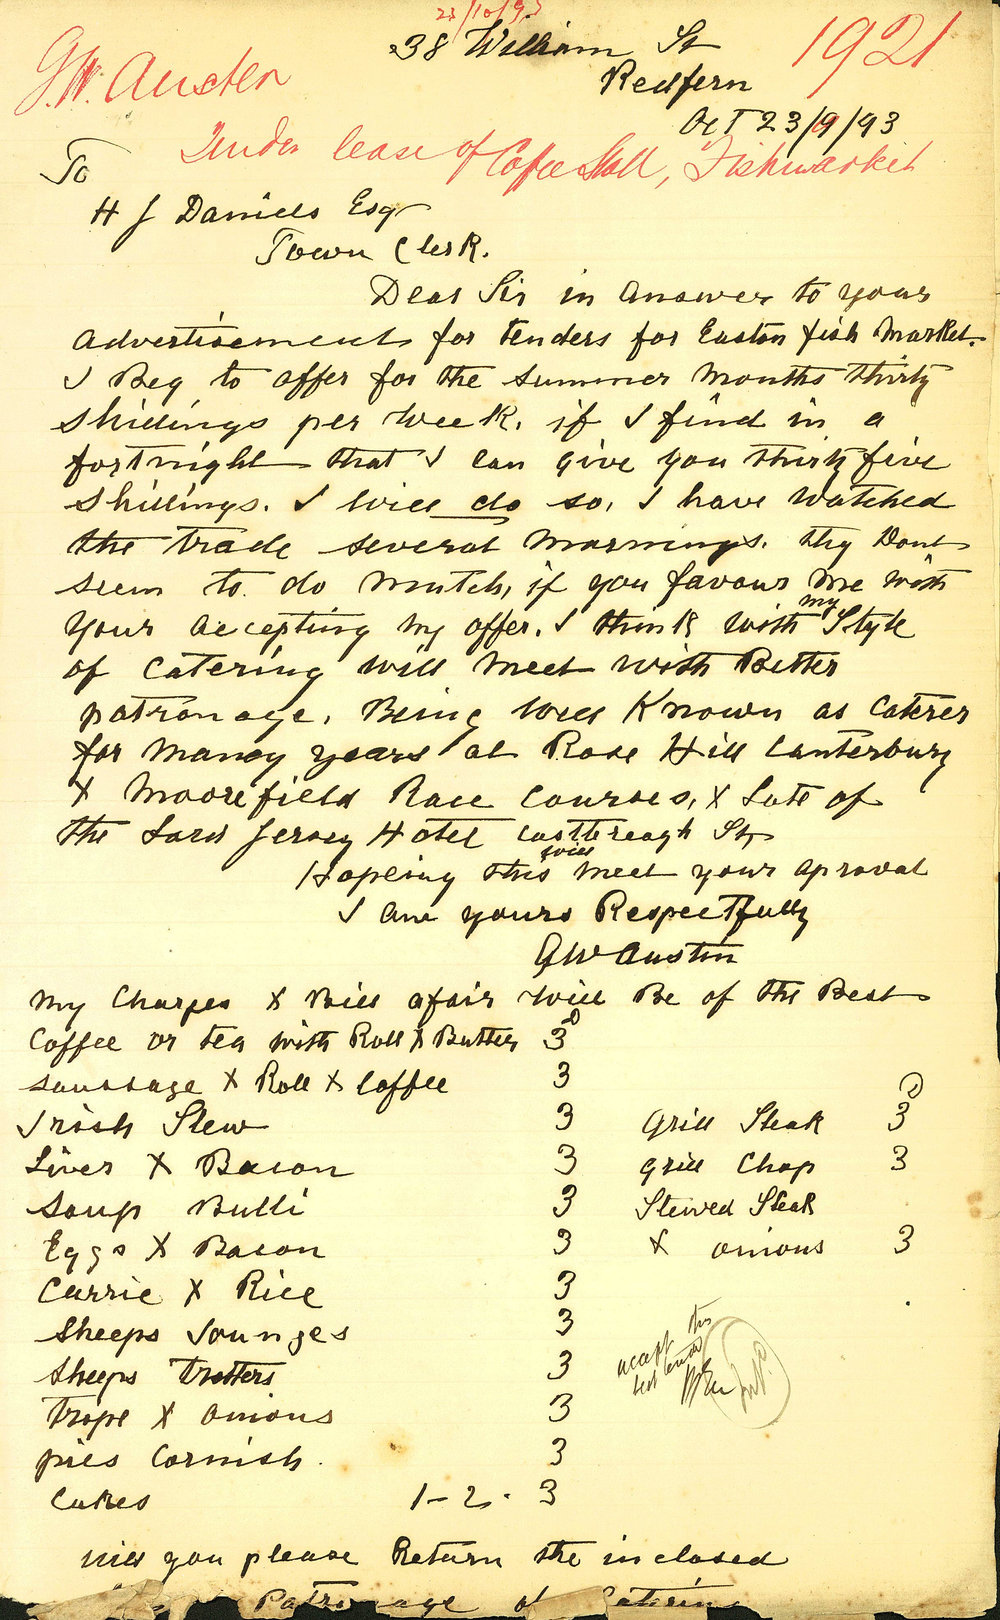 23/10/93
38 William St
1921
G.W. Austen
Redfern
Oct 23/9/93
Tender lease of Cofee Stall, Fishmarket
To
H J Daniels Esqr
Town Clerk.
Dear Sir in answer to your
advertisement for tenders for Easton fish Market.
I Beg to offer for the summer months thirty
shillings per week. if I find in a
fortnight that I can give you thirty five
shillings. I will do so. I have watched
the trade several mornings. thy Dont
seem to do mutch, if you favour me with
your accepting my offer. I think with my Style
of catering will meet with Better
patronage. Being well Known as caterer
for many years at Rose Hill Canterbury
& Moorefield Race Courses, & Late of
the Lord Jersey Hotel Castlereagh St
Hopeing this will meet your aproval
I am yours Respectfully
GW Austin
My Charges & Bill afair will Be of the Best
Coffee or tea with Roll & Butter 3D
saussage & Roll & Coffee 3
Irish Stew 3 Grill Steak 3D
Liver & Bacon 3 grill Chop 3
Soup Bulli 3 Stewed Steak
Eggs & Bacon 3 & onions 3
Currie & Rice 3
Sheeps Tounges 3
Sheeps Trotters 3
Tripe & onions 3
pies Cornish. 3
Cakes 1-2. 3
accept this
will you please Return the inclosed
Patronage of Catering